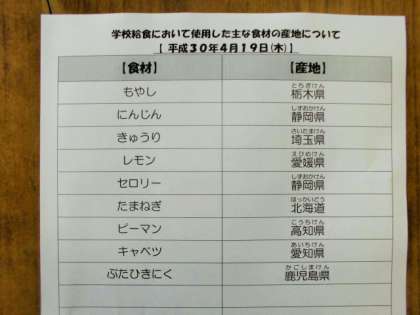 学校給食において使用した主な食材の産地について
【 平成３０年４月１９日(木) 】
【食材】 【産地】
もやし 栃木県 とちぎけん
にんじん 静岡県 しずおかけん
きゅうり 埼玉県 さいたまけん
レモン 愛媛県 えひめけん
セロリー 静岡県 しずおかけん
たまねぎ 北海道 ほっかいどう
ピーマン 高知県 こうちけん
キャベツ 愛知県 あいちけん
ぶたひきにく 鹿児島県 かごしまけん